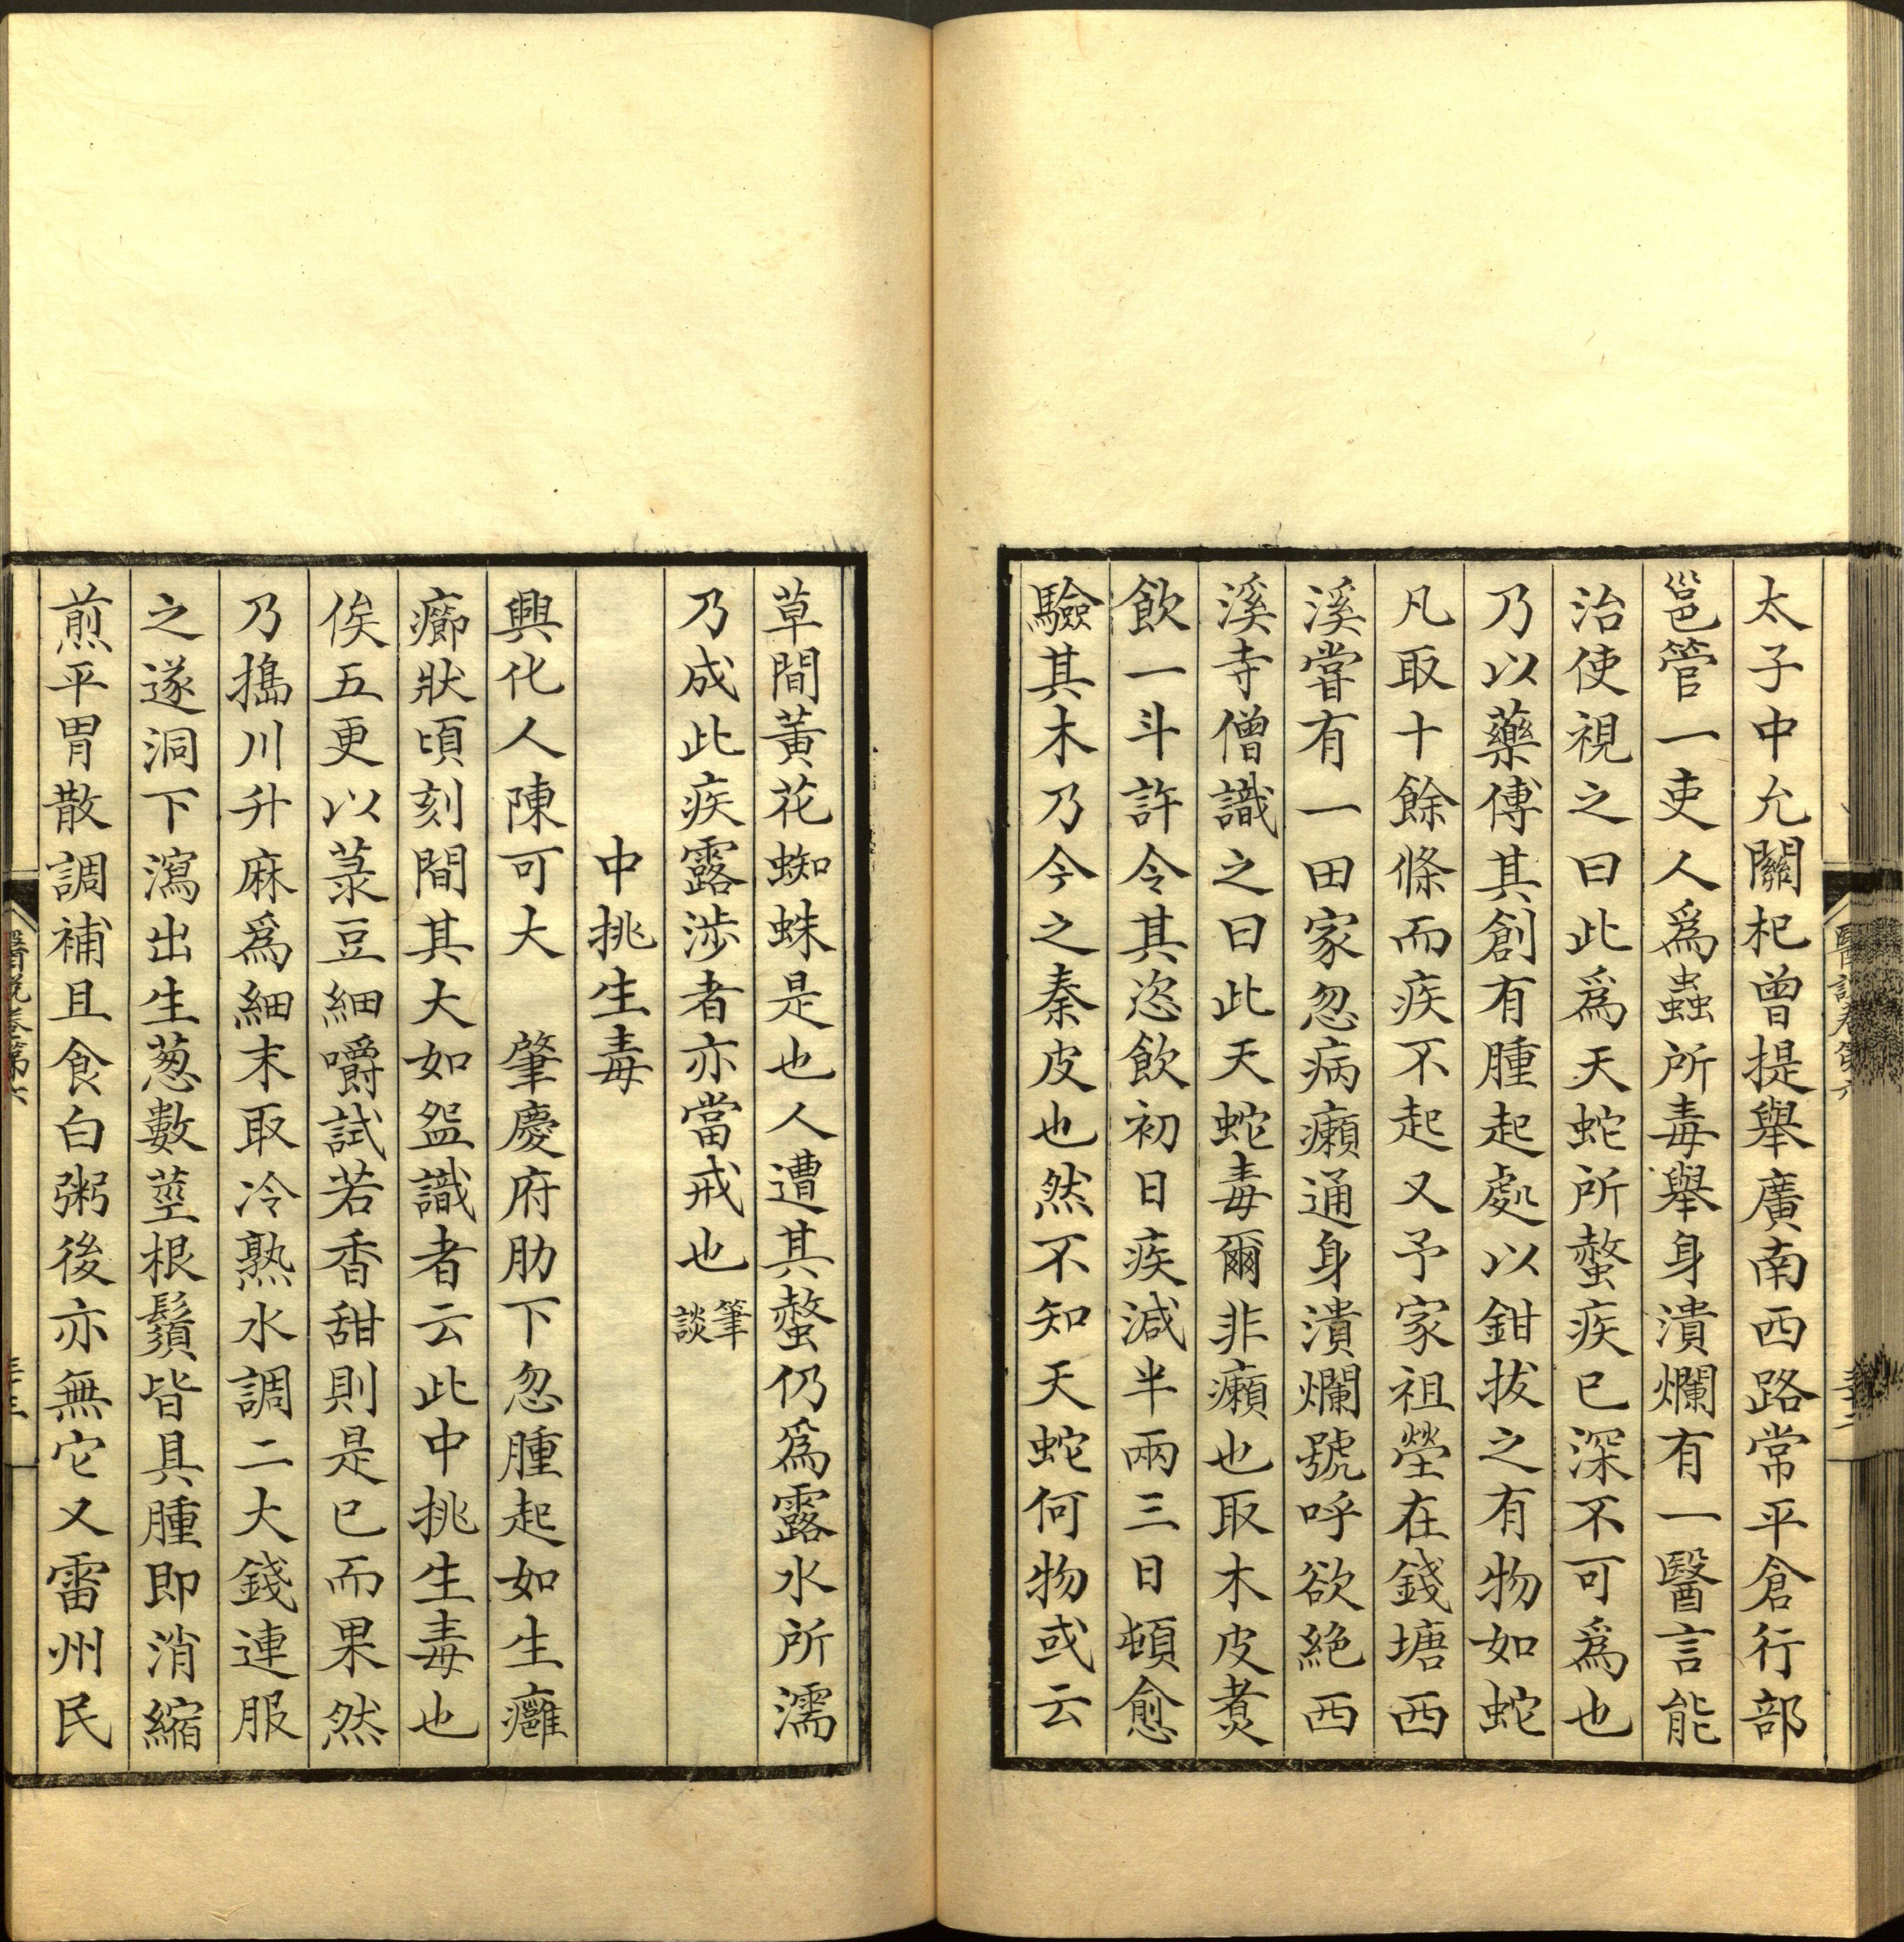 太子中允關杞曾提舉廣南西路常平倉行部
邕管一吏人爲蟲所毒舉身潰爛有一醫言能
治使視之曰此爲天蛇所螫疾已深不可爲也
乃以藥傅其創有腫起處以鉗拔之有物如蛇
凡取十餘條而疾不起又予家祖塋在錢塘西
溪嘗有一田家忽病癩通身潰爛號呼欲絕西
溪寺僧識之曰此天蛇毒爾非癩也取木皮煮
飲一斗許令其恣飲初日疾減半兩三日頓愈
驗其木乃今之秦皮也然不知天蛇何物或云
草間黃花蜘蛛是也人遭其螫仍爲露水所濡
乃成此疾露涉者亦當戒也筆談
中挑生毒
興化人陳可大　肇慶府肋下忽腫起如生癰
癤狀頃刻間其大如盌識者云此中挑生毒也
俟五更以菉豆細嚼試若香甜則是已而果然
乃搗川升麻爲細末取冷熟水調二大錢連服
之遂洞下瀉出生葱數莖根鬚皆具腫即消縮
煎平胃散調補且食白粥後亦無它又雷州民
醫說卷第六